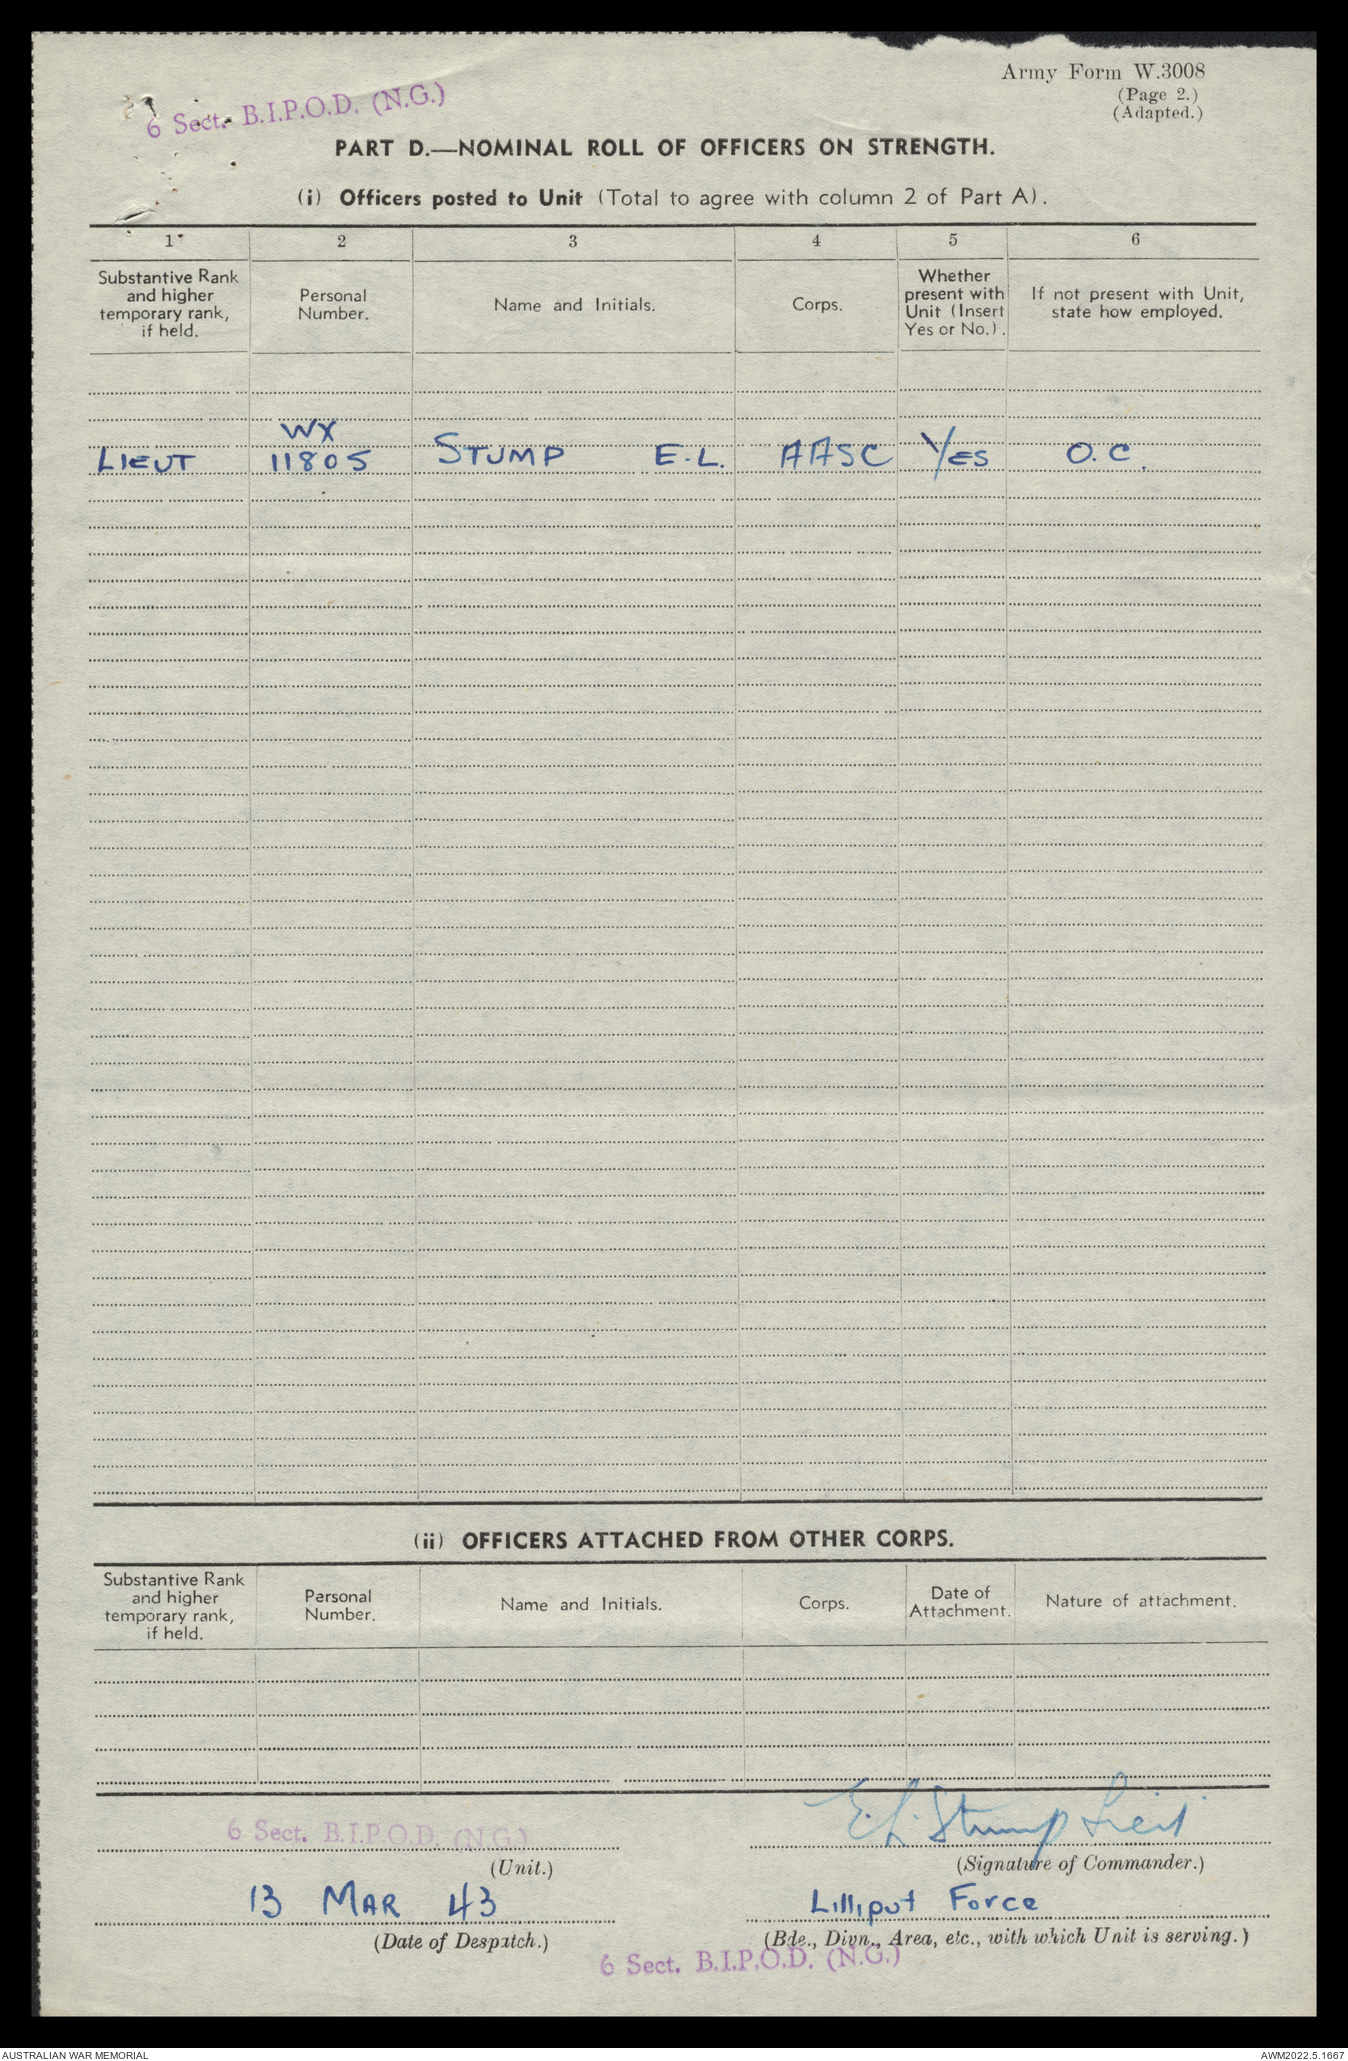 Army Form W.3008
(Page 2.)
(Adapted.)
6 Sect. B.I.P.O.D. (N.G.)
PART D.—NOMINAL ROLL OF OFFICERS ON STRENGTH.
(i) Officers posted to Unit (Total to agree with column 2 of Part A).
1 2 3 4 5 6
Substantive Rank
and higher
temporary rank,
if held.
Personal
Number.
Name and Initials.
Corps.
Whether
present with
Unit (Insert
Yes or No.).
If not present with Unit,
state how employed.
WX
LIEUT 11805 STUMP E.L. AASC YES O.C.
(ii) OFFICERS ATTACHED FROM OTHER CORPS.
Substantive Rank
and higher
temporary rank,
if held.
Personal
Number.
Name and Initials.
Corps.
Date of
Attachment.
Nature of attachment.
6 Sect. B.I.P.O.D. (N.G.)
(Unit.)
E.L. Stump Lieut
(Signature of Commander.)
13 MAR 43
(Date of Despatch.)
Lilliput Force
(Bde., Divn., Area, etc., with which Unit is serving.)
6 Sect. B.I.P.O.D. (N.G.)
AUSTRALIAN WAR MEMORIAL
AWM2022.5.1667